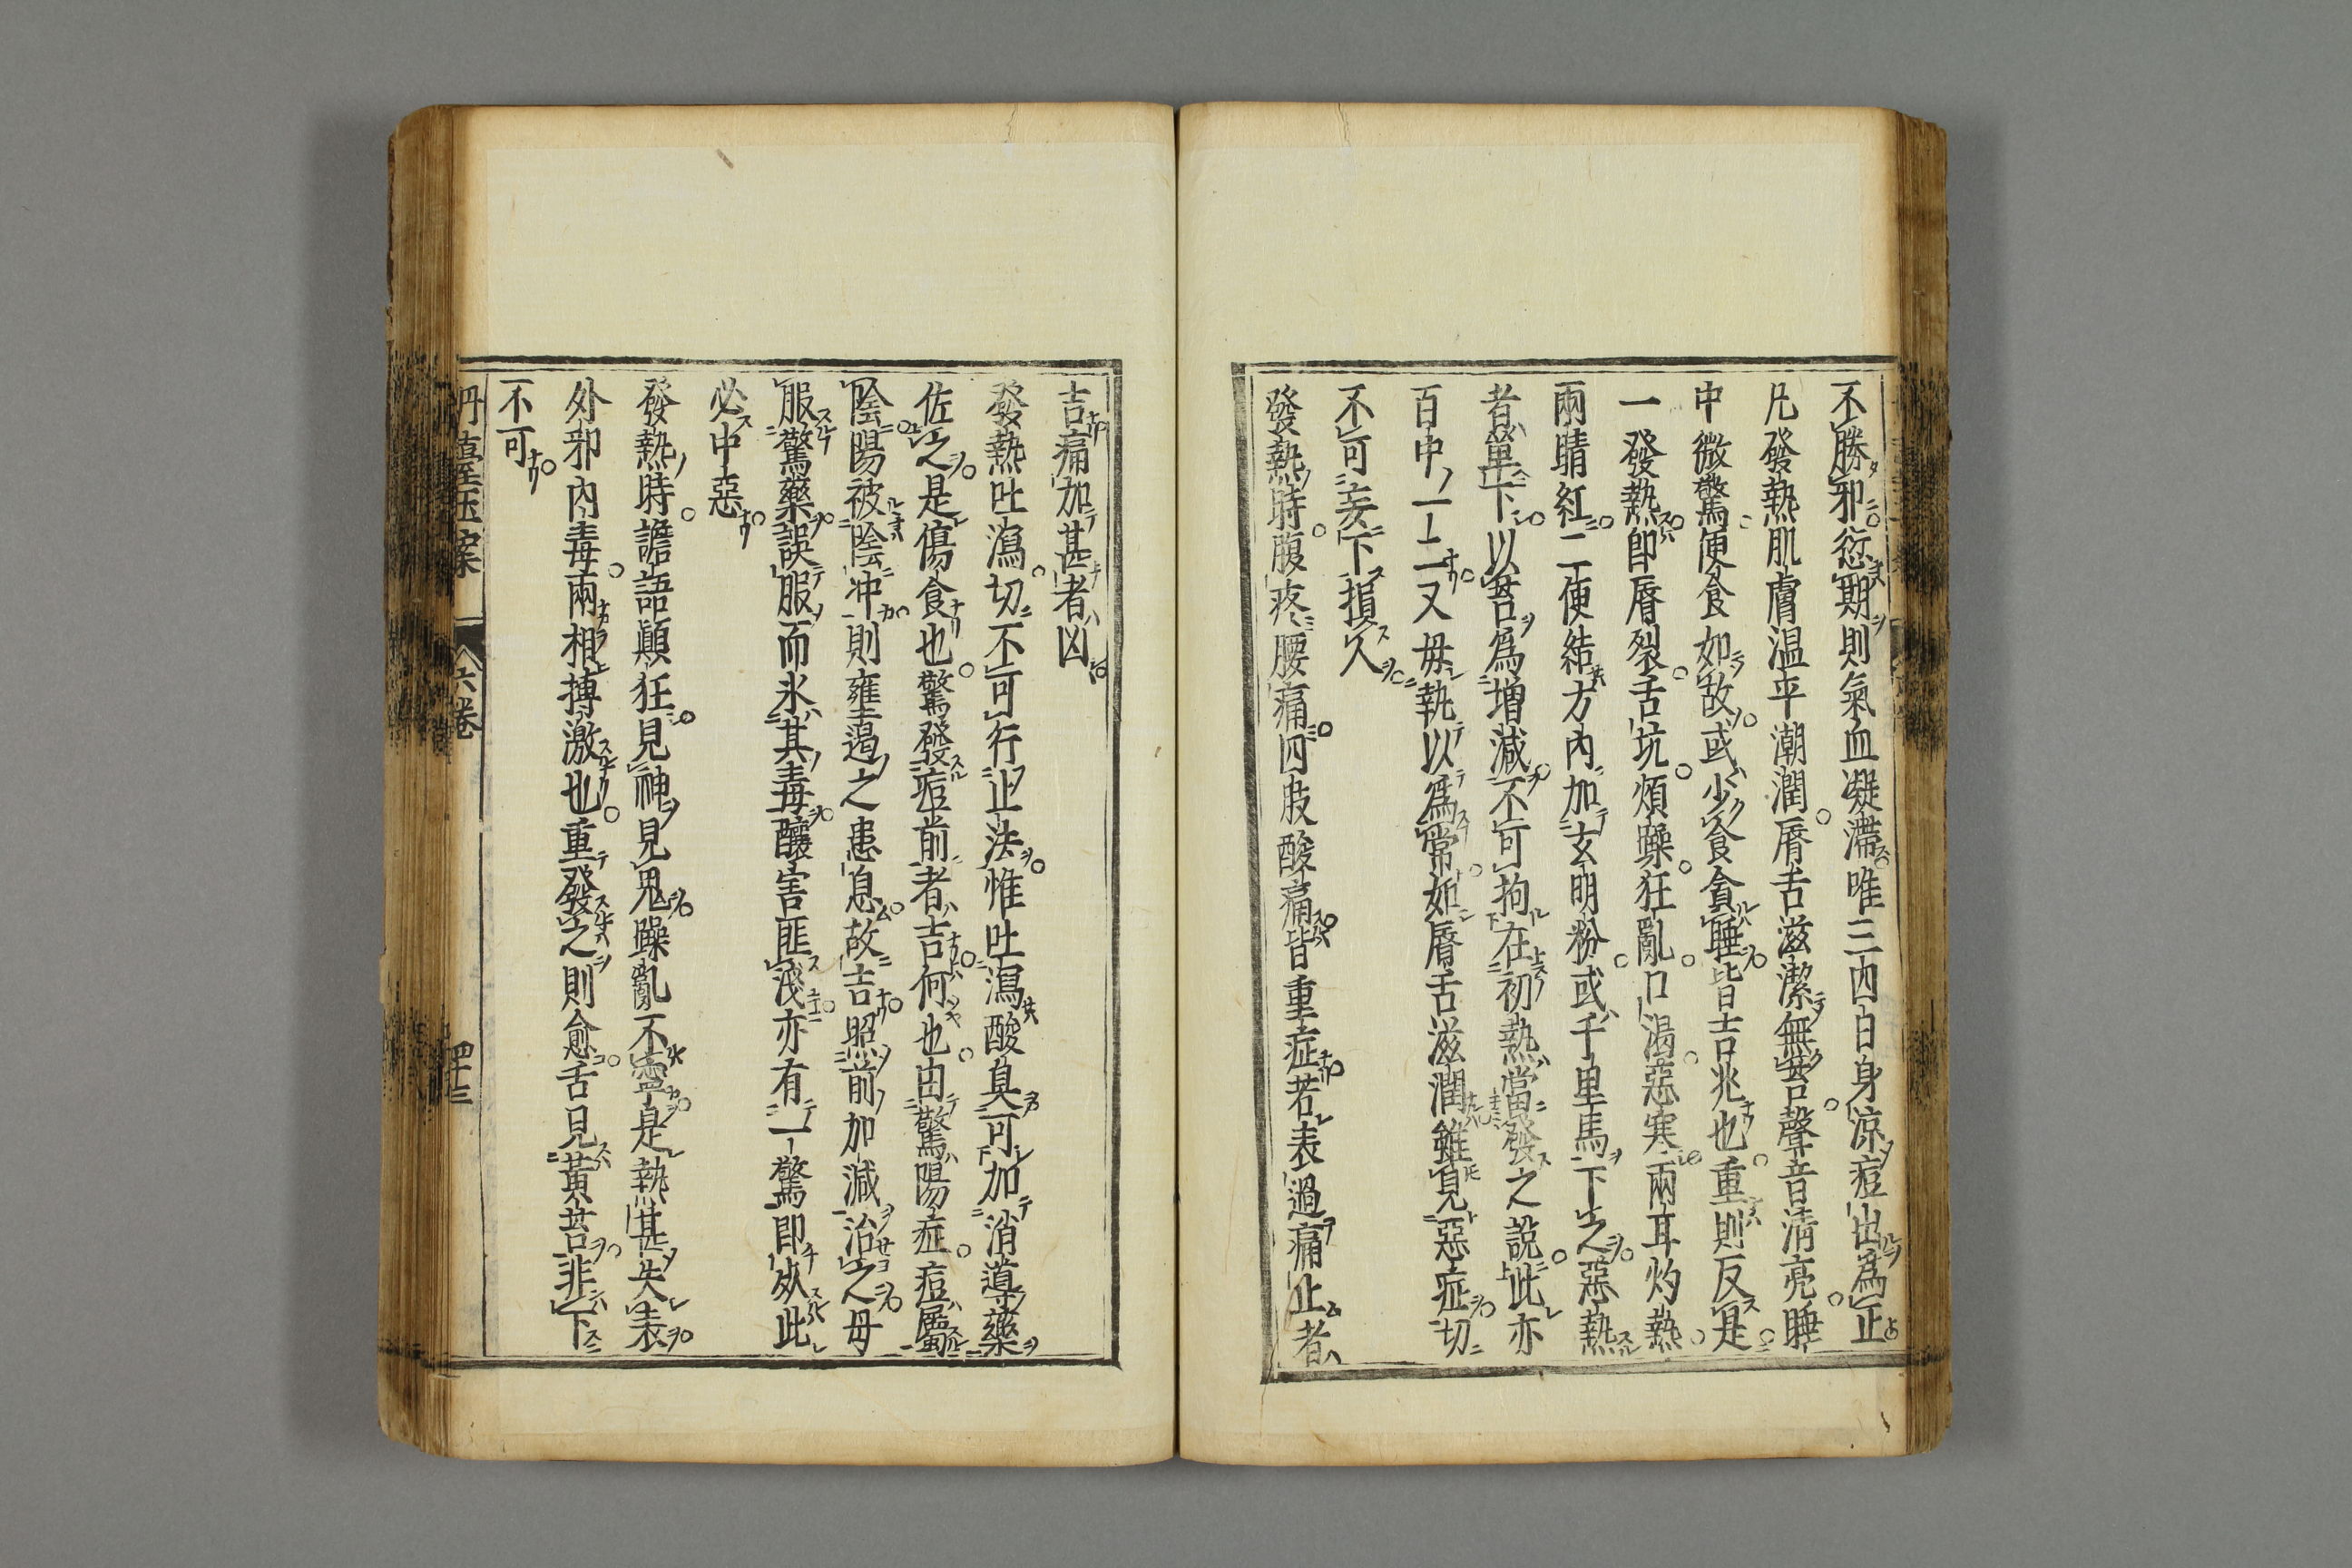 不勝邪愆期則氣血凝滯唯三四日身凉痘出爲正
凡發熱肌膚温平潮潤唇舌滋潔無苔聲音清亮睡
中微驚便食如故或少食貪睡皆吉兆也重則反是
一發熱即唇裂舌坑煩躁狂亂口渴惡寒兩耳灼熱
兩睛紅二便結方內加玄明粉或千里馬下之惡熱
者單下以苔爲増減不可拘在初熱當發之說此亦
百中一二又毋執以爲常如唇舌滋潤雖見惡症切
不可妄下損人
發熱時腹疼腰痛四肢酸痛皆重症若表過痛止者
吉痛加甚者凶
發熱吐瀉切不可行止法惟吐瀉酸臭可加消導藥
佐之是傷食也驚發痘前者吉何也由驚陽症痘屬
陰陽被陰冲則壅遏之患息故吉照前加減治之毋
服驚藥誤服而氷其毒釀害匪淺亦有一驚即死此
必中惡
發熱時譫語顛狂見神見鬼躁亂不寧是熱甚失表
外邪內毒兩相搏激也重發之則愈舌見黃苔非下
不可
丹臺玉案
六卷
四十三